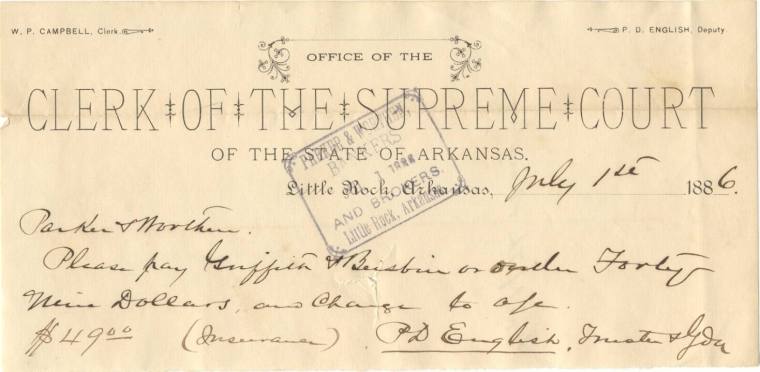 W. P. CAMPBELL, Clerk. P. D. ENGLISH, Deputy
OFFICE OF THE
CLERK OF THE SUPREME COURT
OF THE STATE OF ARKANSAS.
Little Rock, Arkansas, July 1st 1886.
PARKER & WORTHEN,
BANKERS
1 1886
AND BROKERS.
Little Rock, Arkansas
Parker & Worthen.
Please pay Griffith & or order Forty
Nine Dollars, and Charge to a/c
$49.00 (Insurance) P D English, Trustee &